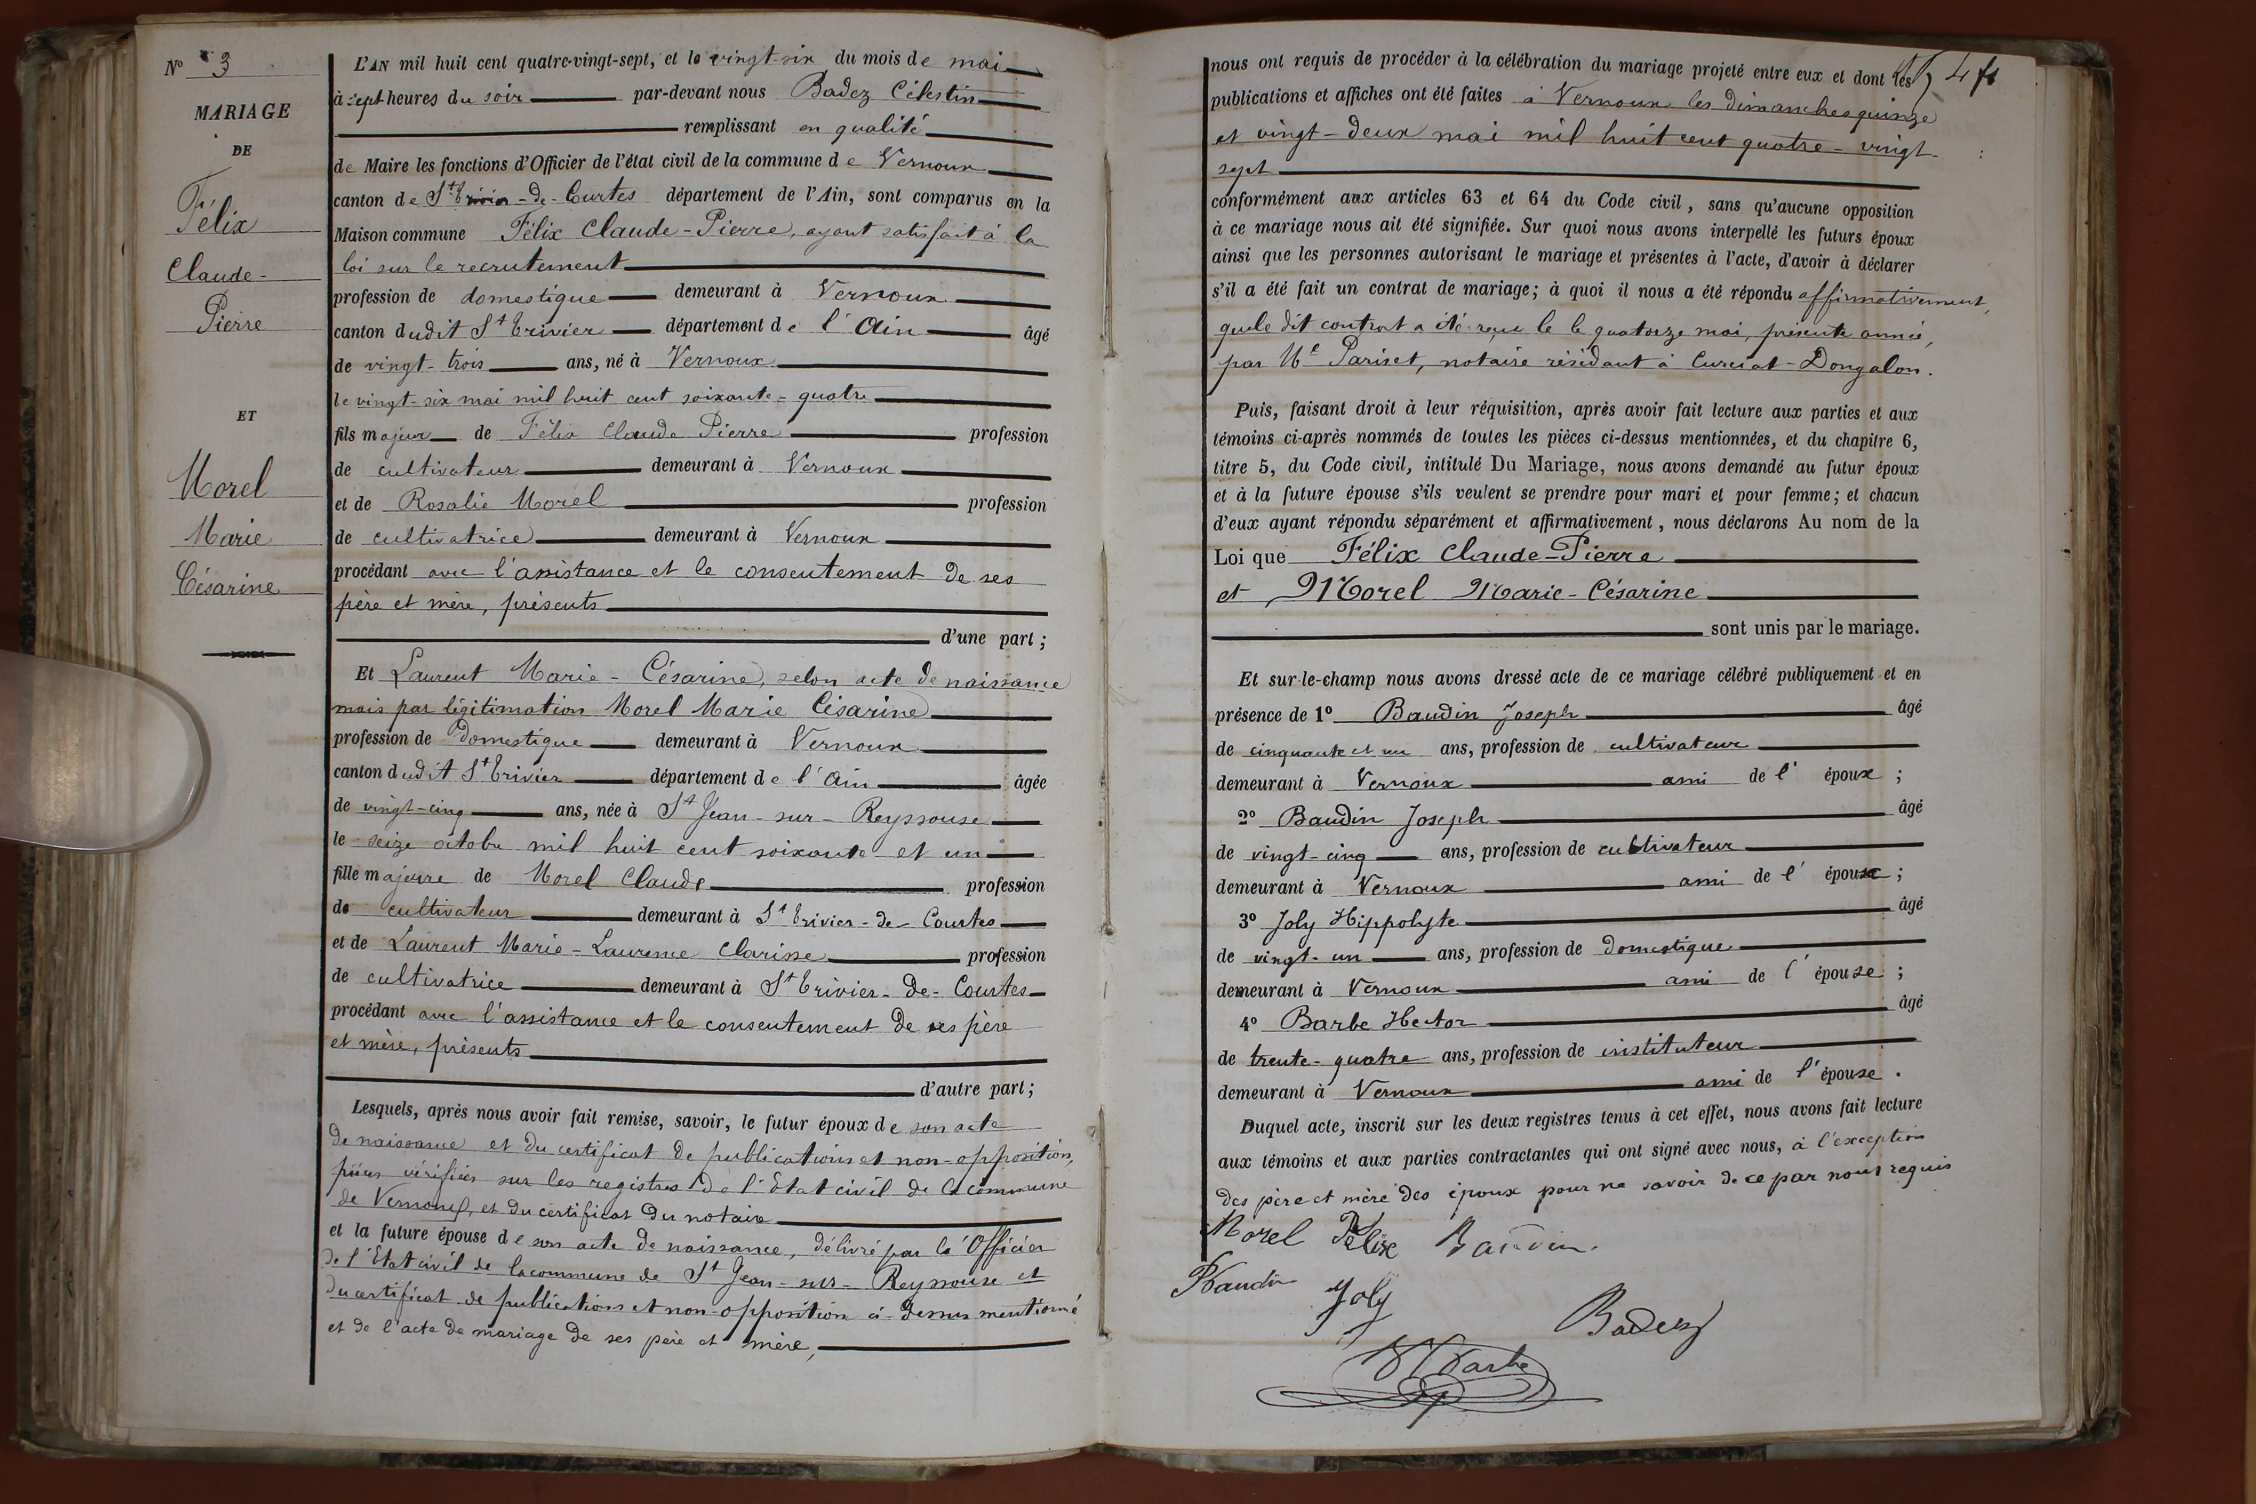 N° 3
MARIAGE
DE
Félix
Claude-
Pierre
ET
Morel
Marie
Césarine
L'AN mil huit cent quatre-vingt-sept, et le vingt-six du mois de mai
à sept heures du soir par-devant nous Badez Célestin
remplissant en qualité
de Maire les fonctions d'Officier de l'état civil de la commune de Vernoux
canton de St Trivier-de-Courtes département de l'Ain, sont comparus en la
Maison commune Félix Claude-Pierre, ayant satisfait à la
loi sur le recrutement
profession de domestique demeurant à Vernoux
canton dudit St Trivier département de l'Ain âgé
de vingt-trois ans, né à Vernoux
le vingt-six mai mil huit cent soixante-quatre
fils majeur de Félix Claude Pierre profession
de cultivateur demeurant à Vernoux
et de Rosalie Morel profession
de cultivatrice demeurant à Vernoux
procédant avec l'assistance et le consentement de ses
père et mère, présents
d'une part;
Et Laurent Marie-Césarine, selon acte de naissance
mais par légitimation Morel Marie Césarine
profession de domestique demeurant à Vernoux
canton dudit St Trivier département de l'Ain âgée
de vingt-cinq ans, née à St Jean-sur-Reyssouse
le seize octobre mil huit cent soixante et un
fille majeure de Morel Claude profession
de cultivateur demeurant à St Trivier-de-Courtes
et de Laurent Marie-Laurence Clarisse profession
de cultivatrice demeurant à St Trivier-de-Courtes
procédant avec l'assistance et le consentement de ses père
et mère, présents
d'autre part;
Lesquels, après nous avoir fait remise, savoir, le futur époux de son acte
de naissance et du certificat de publications et non-opposition,
pièces vérifiées sur les registres de l'Etat civil de la commune
de Vernoux, et du certificat du notaire
et la future épouse de son acte de naissance, délivré par l'Officier
de l'Etat civil de la commune de St Jean-sur-Reyssouse et
du certificat de publications et non-opposition ci-dessus mentionné
et de l'acte de mariage de ses père et mère,
nous ont requis de procéder à la célébration du mariage projeté entre eux et dont les
publications et affiches ont été faites à Vernoux les dimanches quinze
et vingt-deux mai mil huit cent quatre-vingt-
sept
conformément aux articles 63 et 64 du Code civil, sans qu'aucune opposition
à ce mariage nous ait été signifiée. Sur quoi nous avons interpellé les futurs époux
ainsi que les personnes autorisant le mariage et présentes à l'acte, d'avoir à déclarer
s'il a été fait un contrat de mariage; à quoi il nous a été répondu affirmativement,
que le dit contrat a été reçu le le quatorze mai, présente année,
par Me Pariset, notaire résidant à Curciat-Dongalon.
Puis, faisant droit à leur réquisition, après avoir fait lecture aux parties et aux
témoins ci-après nommés de toutes les pièces ci-dessus mentionnées, et du chapitre 6,
titre 5, du Code civil, intitulé Du Mariage, nous avons demandé au futur époux
et à la future épouse s'ils veulent se prendre pour mari et pour femme; et chacun
d'eux ayant répondu séparément et affirmativement, nous déclarons Au nom de la
Loi que Félix Claude-Pierre
et Morel Marie-Césarine
sont unis par le mariage.
Et sur-le-champ nous avons dressé acte de ce mariage célébré publiquement et en
présence de 1° Baudin Joseph âgé
de cinquante et un ans, profession de cultivateur
demeurant à Vernoux ami de l'époux;
2° Baudin Joseph âgé
de vingt-cinq ans, profession de cultivateur
demeurant à Vernoux ami de l'époux;
3° Joly Hippolyte âgé
de vingt-un ans, profession de domestique
demeurant à Vernoux ami de l'épouse;
4° Barbe Hector âgé
de trente-quatre ans, profession de instituteur
demeurant à Vernoux ami de l'épouse.
Duquel acte, inscrit sur les deux registres tenus à cet effet, nous avons fait lecture
aux témoins et aux parties contractantes qui ont signé avec nous, à l'exception
des père et mère des époux pour ne savoir de ce par nous requis
Morel Félix Baudin.
Baudin Joly
Badez
Barbe